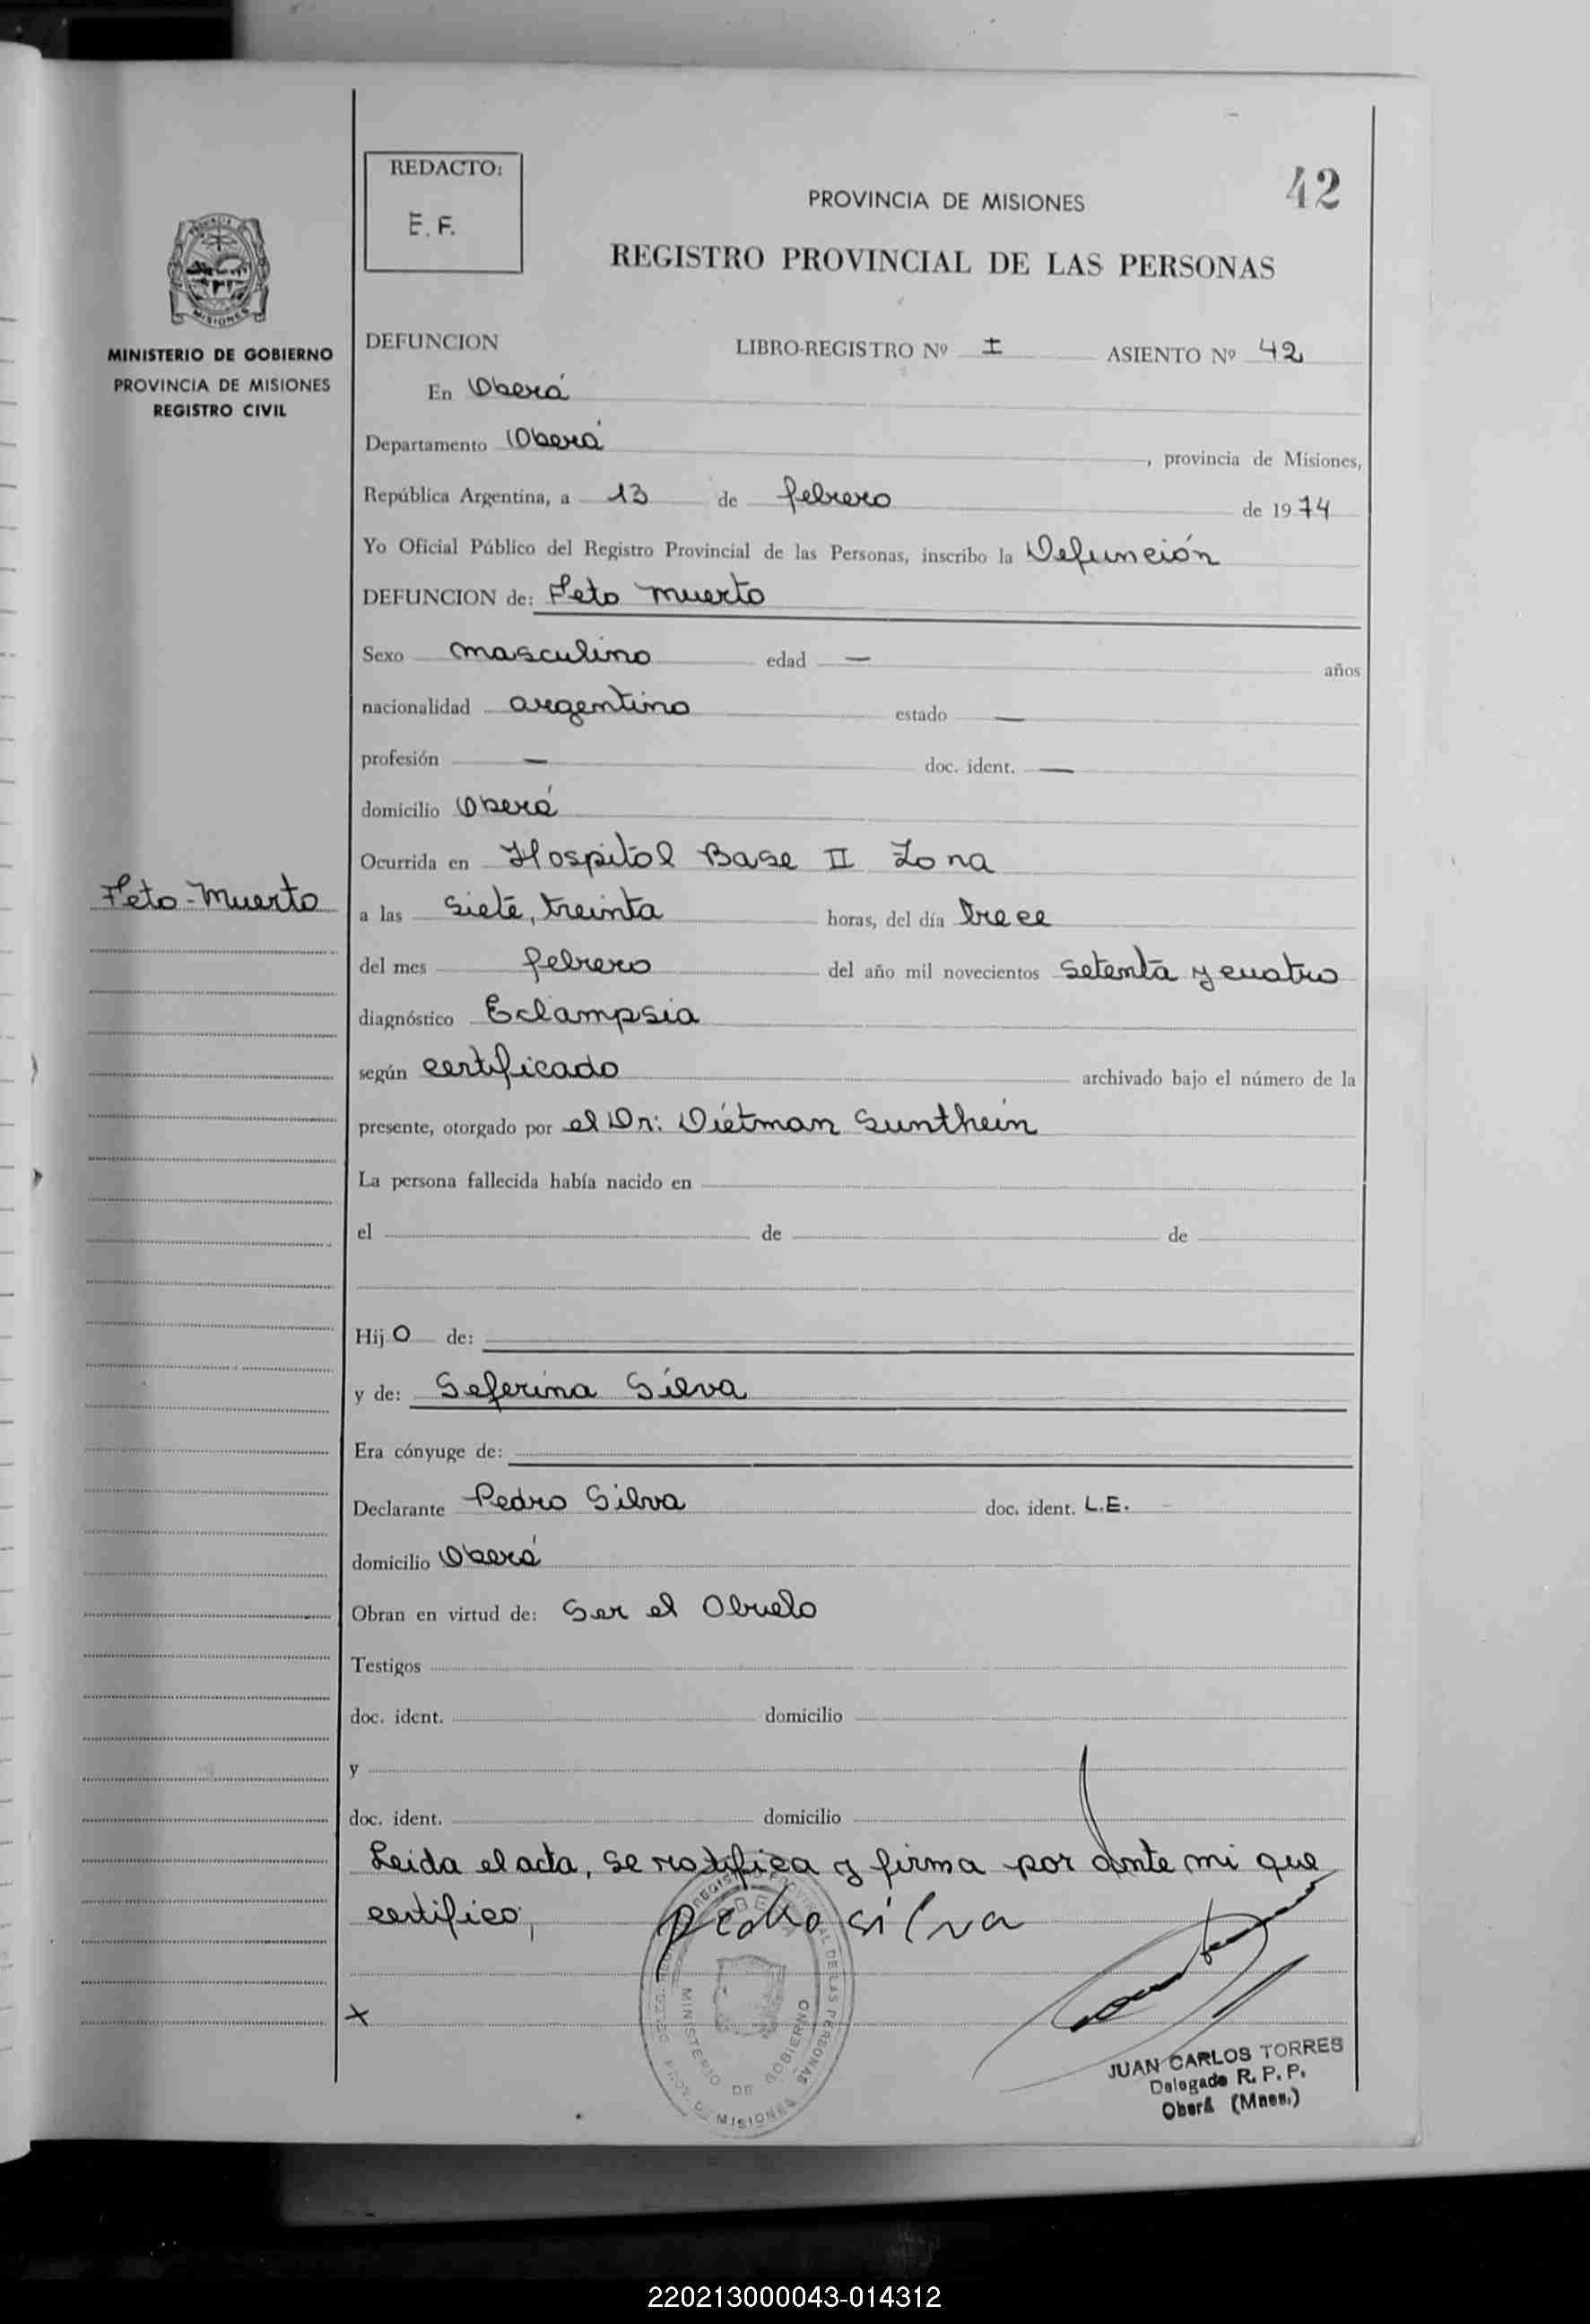 REDACTO:
E. F.
PROVINCIA DE MISIONES
42
REGISTRO PROVINCIAL DE LAS PERSONAS
MISIONES
MINISTERIO DE GOBIERNO
PROVINCIA DE MISIONES
REGISTRO CIVIL
DEFUNCION LIBRO-REGISTRO Nº I ASIENTO Nº 42
En Oberá
Departamento Oberá, provincia de Misiones,
República Argentina, a 13 de febrero de 1974
Yo Oficial Público del Registro Provincial de las Personas, inscribo la Defunción
DEFUNCION de: Feto muerto
Sexo masculino edad — años
nacionalidad argentino estado —
profesión — doc. ident. —
domicilio Oberá
Ocurrida en Hospital Base II Zona
Feto-Muerto
a las siete, treinta horas, del día trece
del mes febrero del año mil novecientos setenta y cuatro
diagnóstico Eclampsia
según certificado archivado bajo el número de la
presente, otorgado por el Dr: Dietman Sunthein
La persona fallecida había nacido en
el de de
Hijo de:
y de: Seferina Silva
Era cónyuge de:
Declarante Pedro Silva doc. ident. L.E.
domicilio Oberá
Obran en virtud de: Ser el Abuelo
Testigos
doc. ident. domicilio
y
doc. ident. domicilio
Leida el acta, se ratifica y firma por ante mi que
certifico,
pedro silva
REGISTRO PROVINCIAL DE LAS PERSONAS
MINISTERIO DE GOBIERNO
MISIONES
JUAN CARLOS TORRES
Delegado R. P. P.
Oberá (Mnes.)
220213000043-014312